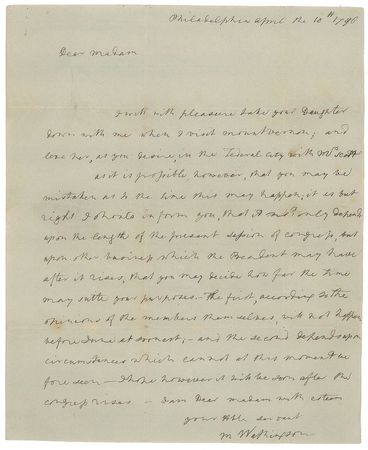 Philadelphia April the 10th 1796
Dear Madam
I will with pleasure take your Daughter
down with me when I visit mount vernon; and
leave her, as you desire, in the Federal City with Mrs
as it is possible however, that you may be
mistaken as to the time this may happen, it is but
right I should inform you, that it must only depend
upon the length of the present session of congress, but
upon other business which the President may have
after it rises, that you may decide how far the time
may suite your purposes. - The first, according to the
opinions of the members themselves, will not happen
before June at soonest; - and the second depends upon
circumstances which cannot at this moment be
fore seen - I hope however it will be soon after the
congress rises - I am Dear madam with esteem
your Hble servant
M Washington